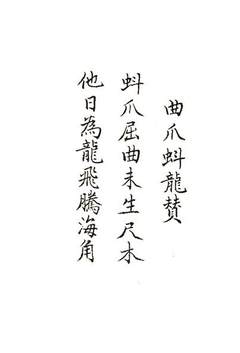 曲爪蚪龍賛
蚪爪屈曲未生尺木
他日為龍飛騰海角